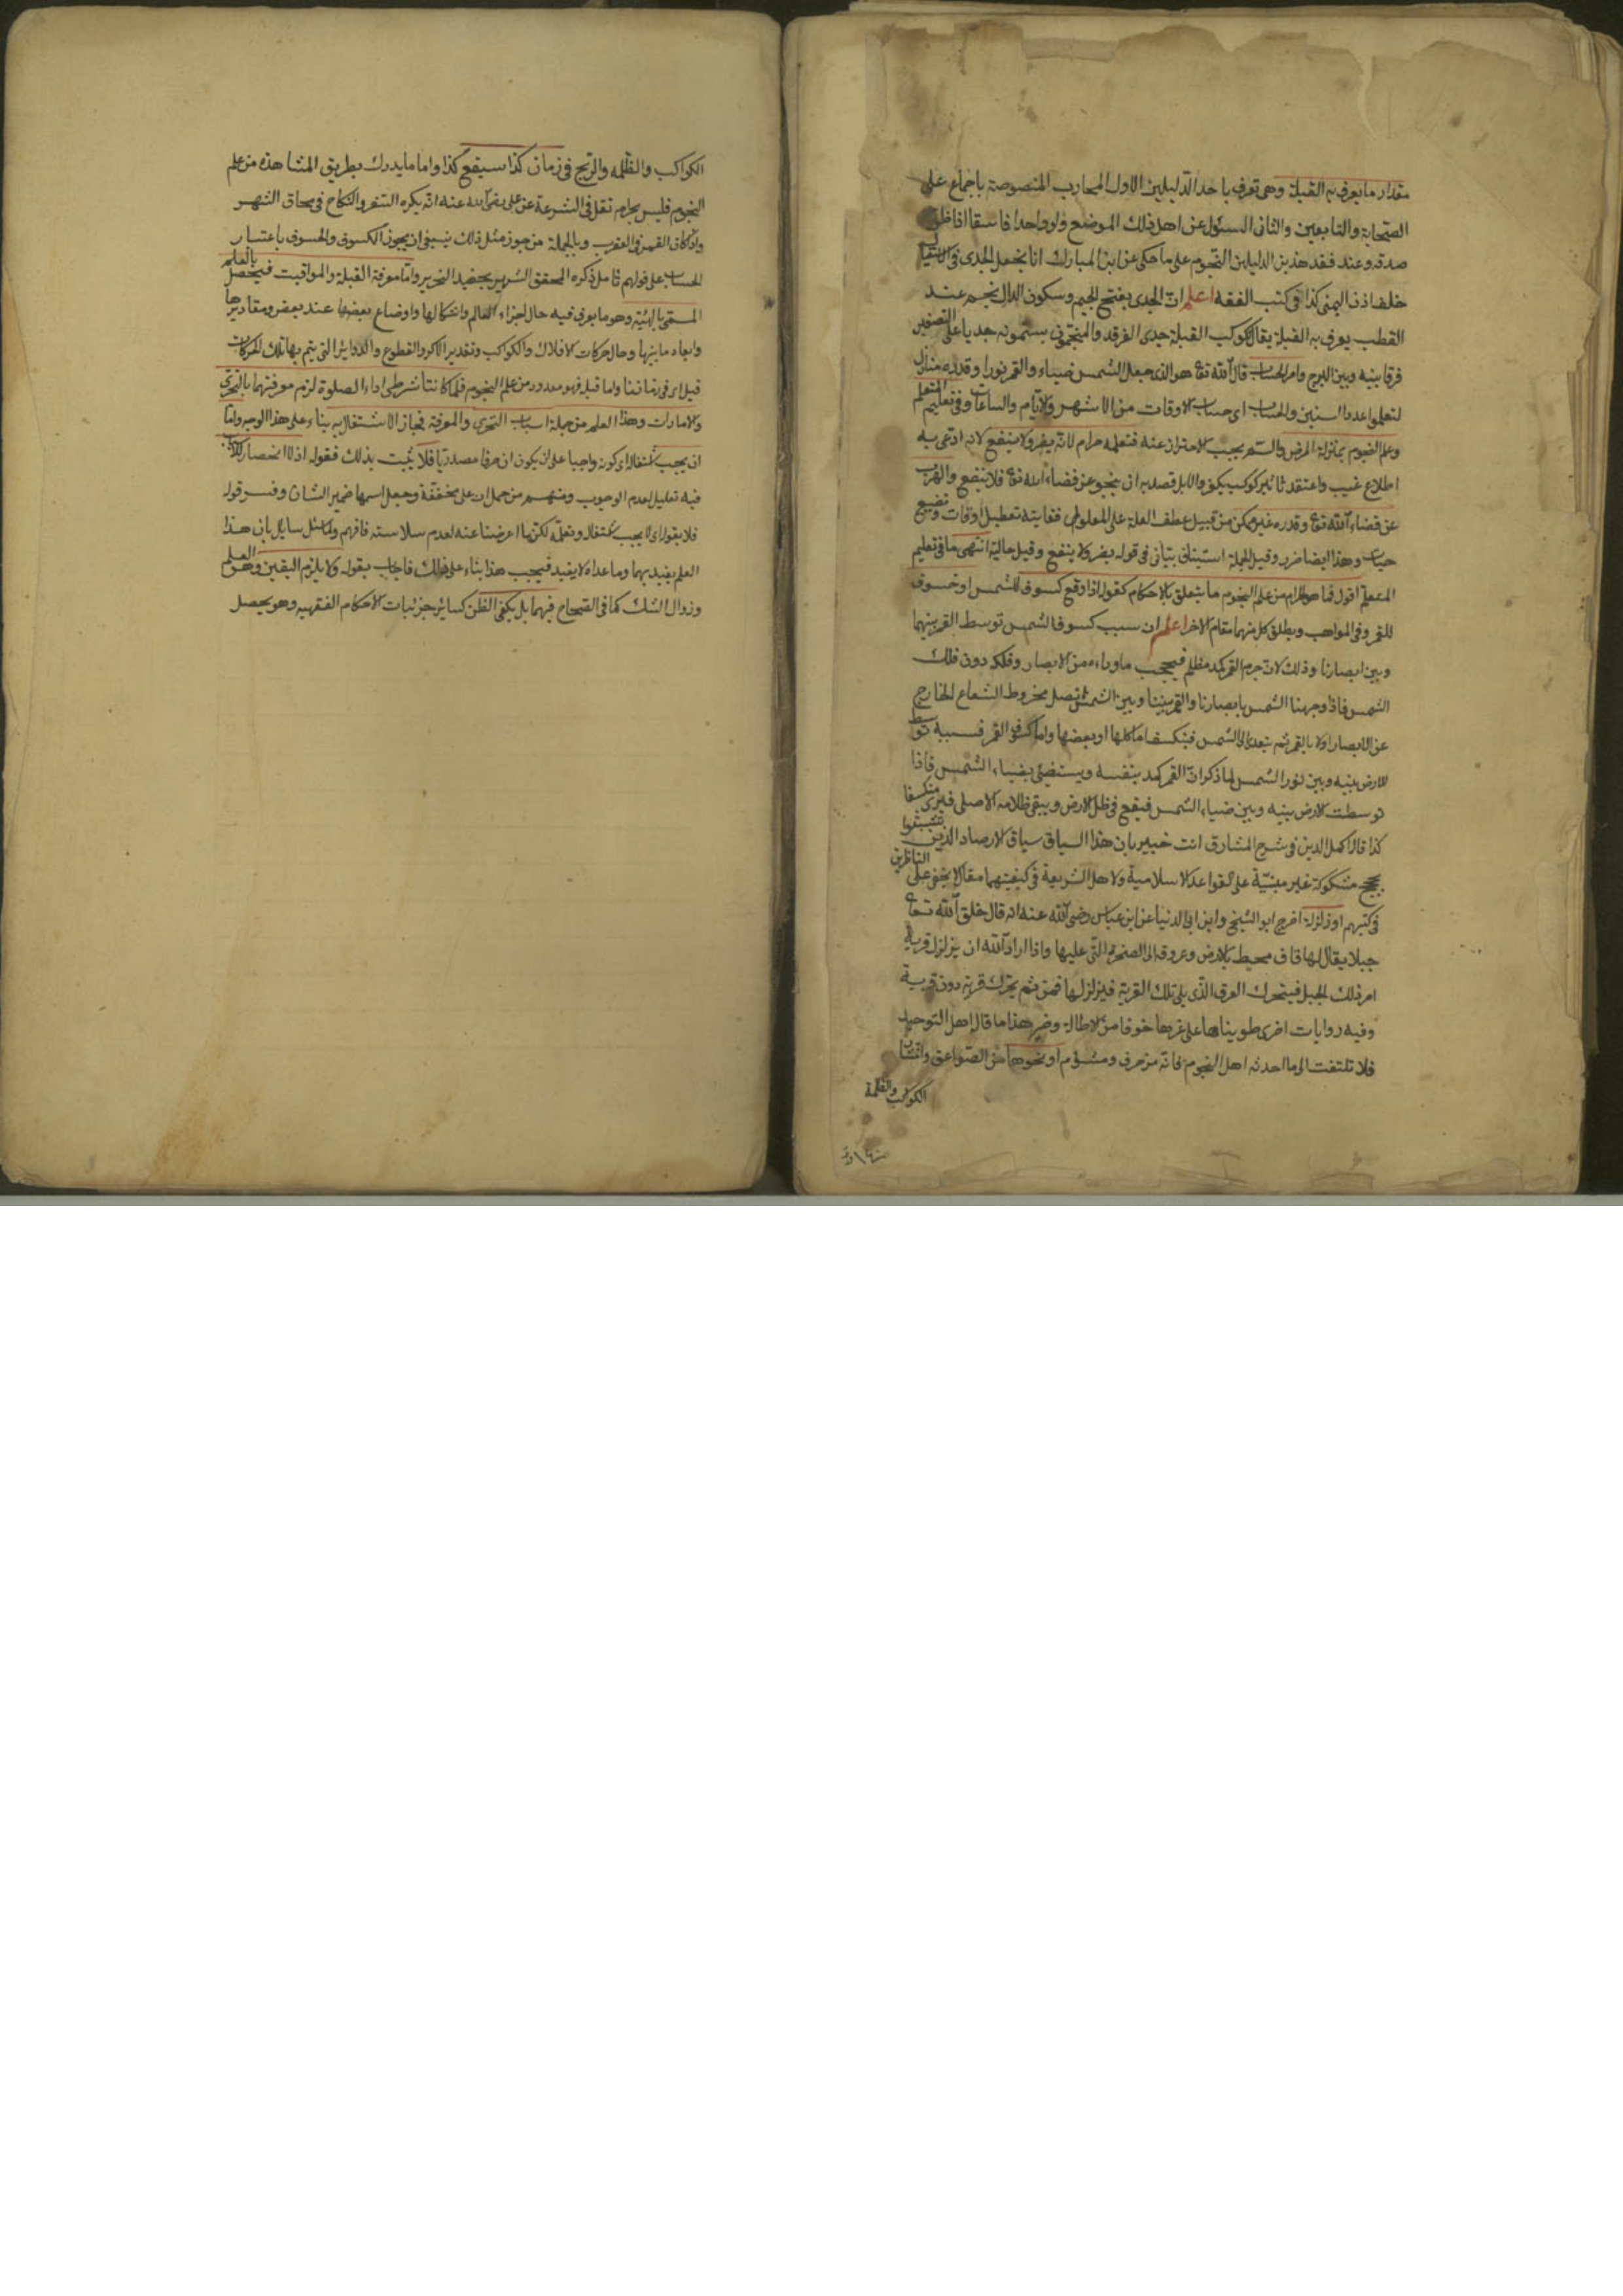 مقدار ما يعرف به القبلة وهى تعرف باحد الدليلين الاول المحاريب المنصوصة باجماع على
الصحابة والتابعين والثانى السئوال عن اهل ذلك الموضع ولو واحدا فاسقا اذا ظن
صدقه وعند فقد هذين الدليلين النجوم على ما حكى عن ابن المبارك انا نجعل الجدى فى
خلف اذن اليمنى كذا فى كتب الفقه اعلم ان الجدى بفتح الجيم وسكون الدال نجم عند
القطب يعرف به القبلة يقال لكوكب القبلة جدى الفرقد والمنجمون يسمونه جديا على التصغير
فرقا بينه وبين البرج وامر الحساب قال الله تع هو الذى جعل الشمس ضياء والقمر نورا وقدره منازل
لتعلموا عدد السنين والحساب اى حساب الاوقات من الاشهر والايام والساعات وفى تعليم المتعلم
وعلم النجوم بمنزلة المرض والستم يجب الاحتراز عنه فتعلمه حرام لانه يضر ولا ينفع لانه ادعى به
اطلاع غيب واعتقد تاثير كوكب بل قصد به ان ينجو عن قضاء الله تع فلا ينفع والهرب
عن قضاء الله تع وقدره غير ممكن من قبيل عطف العلة على المعلول فغايته تعطيل اوقات وتضييع
حياة وهذا ايضا ضرر وقيل الجملة استينافى بيانى فى قوله يضر ولا ينفع وقيل حالية انتهى ما فى تعليم
المتعلم اقول فما هو الحرام من علم النجوم ما يتعلق بالاحكام كقوله اذا وقع كسوف للشمس او خسوف
للقمر وفى المواهب ويطلق كل منهما مقام الاخر اعلم ان سبب كسوف الشمس توسط القمر بينهما
وبين ابصارنا وذلك لان جرم القمر كمد مظلم فيحجب ما وراءه من الابصار وفلكه دون فلك
الشمس فاذا وجهنا الشمس بابصارنا والقمر بيننا وبين الشمس تصل مخروط الشعاع الخارج
عن الابصار اولا بالقمر ثم يتعدى الى الشمس فينكسف اما كلها او بعضها واما كسوف القمر فسببه توسط
الارض بينه وبين نور الشمس لما ذكر ان القمر كمد بنفسه ويستضئ بضياء الشمس فاذا
توسطت الارض بينه وبين ضياء الشمس فيقع فى ظل الارض ويبقى ظلامه الاصلى فيرى منكسفا
كذا قال اكمل الدين فى شرح المشارق انت خبير بان هذا السياق سياق الارصاد الذين تشبثوا
بحجج مشكوكة غير مبنية على القواعد الاسلامية ولاهل الشريعة فى كيفيتهما مقال لا يخفى على الناظرين
فى كتبهم او زلزلة اخرج ابو الشيخ وابن ابى الدنيا عن ابن عباس رضى الله عنه انه قال خلق الله تعالى
جبلا يقال لها قاف محيط بالارض وعروقه الى الصخرة التى عليها واذا اراد الله ان يزلزل قرية
امر ذلك الجبل فيتحرك العرق الذى يلى تلك القرية فيزلزلها فمن ثم يحرك قرية دون قرية
وفيه روايات اخرى طويناها على غربها خوفا من الاطالة وخير هذا ما قال اهل التوحيد
فلا تلتفت الى ما احدثه اهل النجوم فانه مزحرف ومشؤم او نحوها من الصواعق وانتشار
الكواكب والظلمة
الكواكب والظلمه والريح فى زمان كذا سيقع كذا واما ما يدرك بطريق المشاهدة من علم
النجوم فليس بحرام نقل فى الشرعة عن على رضى الله عنه انه يكره السفر والنكاح فى محاق الشهر
واذا كان القمر فى العقرب وبالجملة من جوز مثل ذلك ينبغى ان يجوز الكسوف والخسوف باعتبار
الحساب على قولهم تامل ذكره المحقق الشهير بحفيد النحرير واما معرفة القبلة والمواقيت فيحصل بالعلم
المسمى بالهيئة وهو ما يعرف فيه حال اجزاء العالم واشكالها واوضاع بعضها عند بعض ومقاديرها
وابعاد ما بينها وحال حركات الافلاك والكواكب وتقدير الاكر والقطوع والدوائر التى يتم بها تلك الحركات
قيل اى فى زماننا واما قبله فهو معدود من علم النجوم فلما كانتا شرطى اداء الصلوة لزم معرفتهما بالتحرى
والامارات وهذا العلم من جملة اسباب التحرى والمعرفة فجاز الاشتغال به بناء على هذا الوجه واما
ان يجب اشتغال اى كونه واجبا على ان يكون ان حرفا مصدريا فلا يثبت بذلك فقوله اذ لا انحصار
فيه تعليل لعدم الوجوب ومنهم من حمل ان على مخففة وجعل اسمها ضمير الشان وفسر قوله
فلا بقوله اى لا يجب اشتغال وتعلمه لكن ما اعرضنا عنه لعدم سلاسته فافهم ولما سئل سايل بان هذا
العلم يفيد بهما وما عداه لا يفيد فيجب هذا بناء على ذلك فاجاب بقوله ولا يلزم اليقين وهو العلم
وزوال الشك كما فى الصحاح فيهما بل يكفى الظن كسائر جزئيات الاحكام الفقهيه وهو يحصل